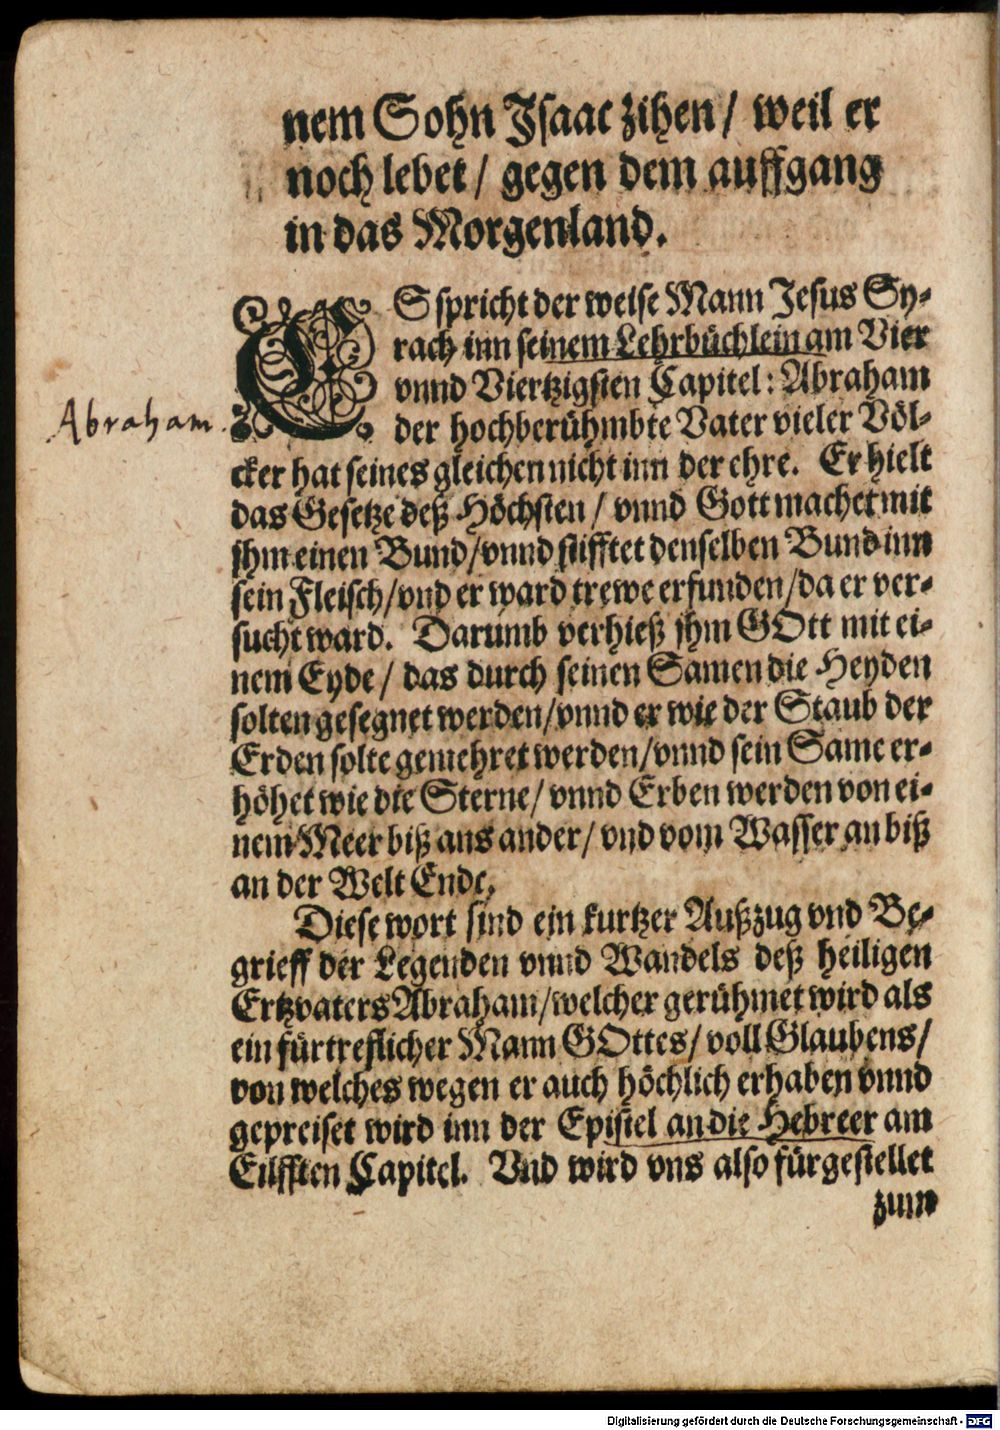 nem Sohn Isaac zihen / weil er
noch lebet / gegen dem auffgang
in das Morgenland.
ES spricht der weise Mann Jesus Sy-
rach inn seinem Lehrbüchlein am Vier
vnnd Viertzigsten Capitel: Abraham
Abraham
der hochberühmbte Vater vieler Völ-
cker hat seines gleichen nicht inn der ehre. Er hielt
das Gesetze deß Höchsten / vnnd Gott machet mit
jhm einen Bund / vnnd stifftet denselben Bund inn
sein Fleisch / vnd er ward trewe erfunden / da er ver-
sucht ward. Darumb verhieß jhm GOtt mit ei-
nem Eyde / das durch seinen Samen die Heyden
solten gesegnet werden / vnnd er wie der Staub der
Erden solte gemehret werden / vnnd sein Same er-
höhet wie die Sterne / vnnd Erben werden von ei-
nem Meer biß ans ander / vnd vom Wasser an biß
an der Welt Ende.
Diese wort sind ein kurtzer Außzug vnd Be-
grieff der Legenden vnnd Wandels deß heiligen
Ertzvaters Abraham / welcher gerühmet wird als
ein fürtreflicher Mann GOttes / voll Glaubens /
von welches wegen er auch höchlich erhaben vnnd
gepreiset wird inn der Epistel an die Hebreer am
Eilfften Capitel. Vnd wird vns also fürgestellet
zum
Digitalisierung gefördert durch die Deutsche Forschungsgemeinschaft - DFG